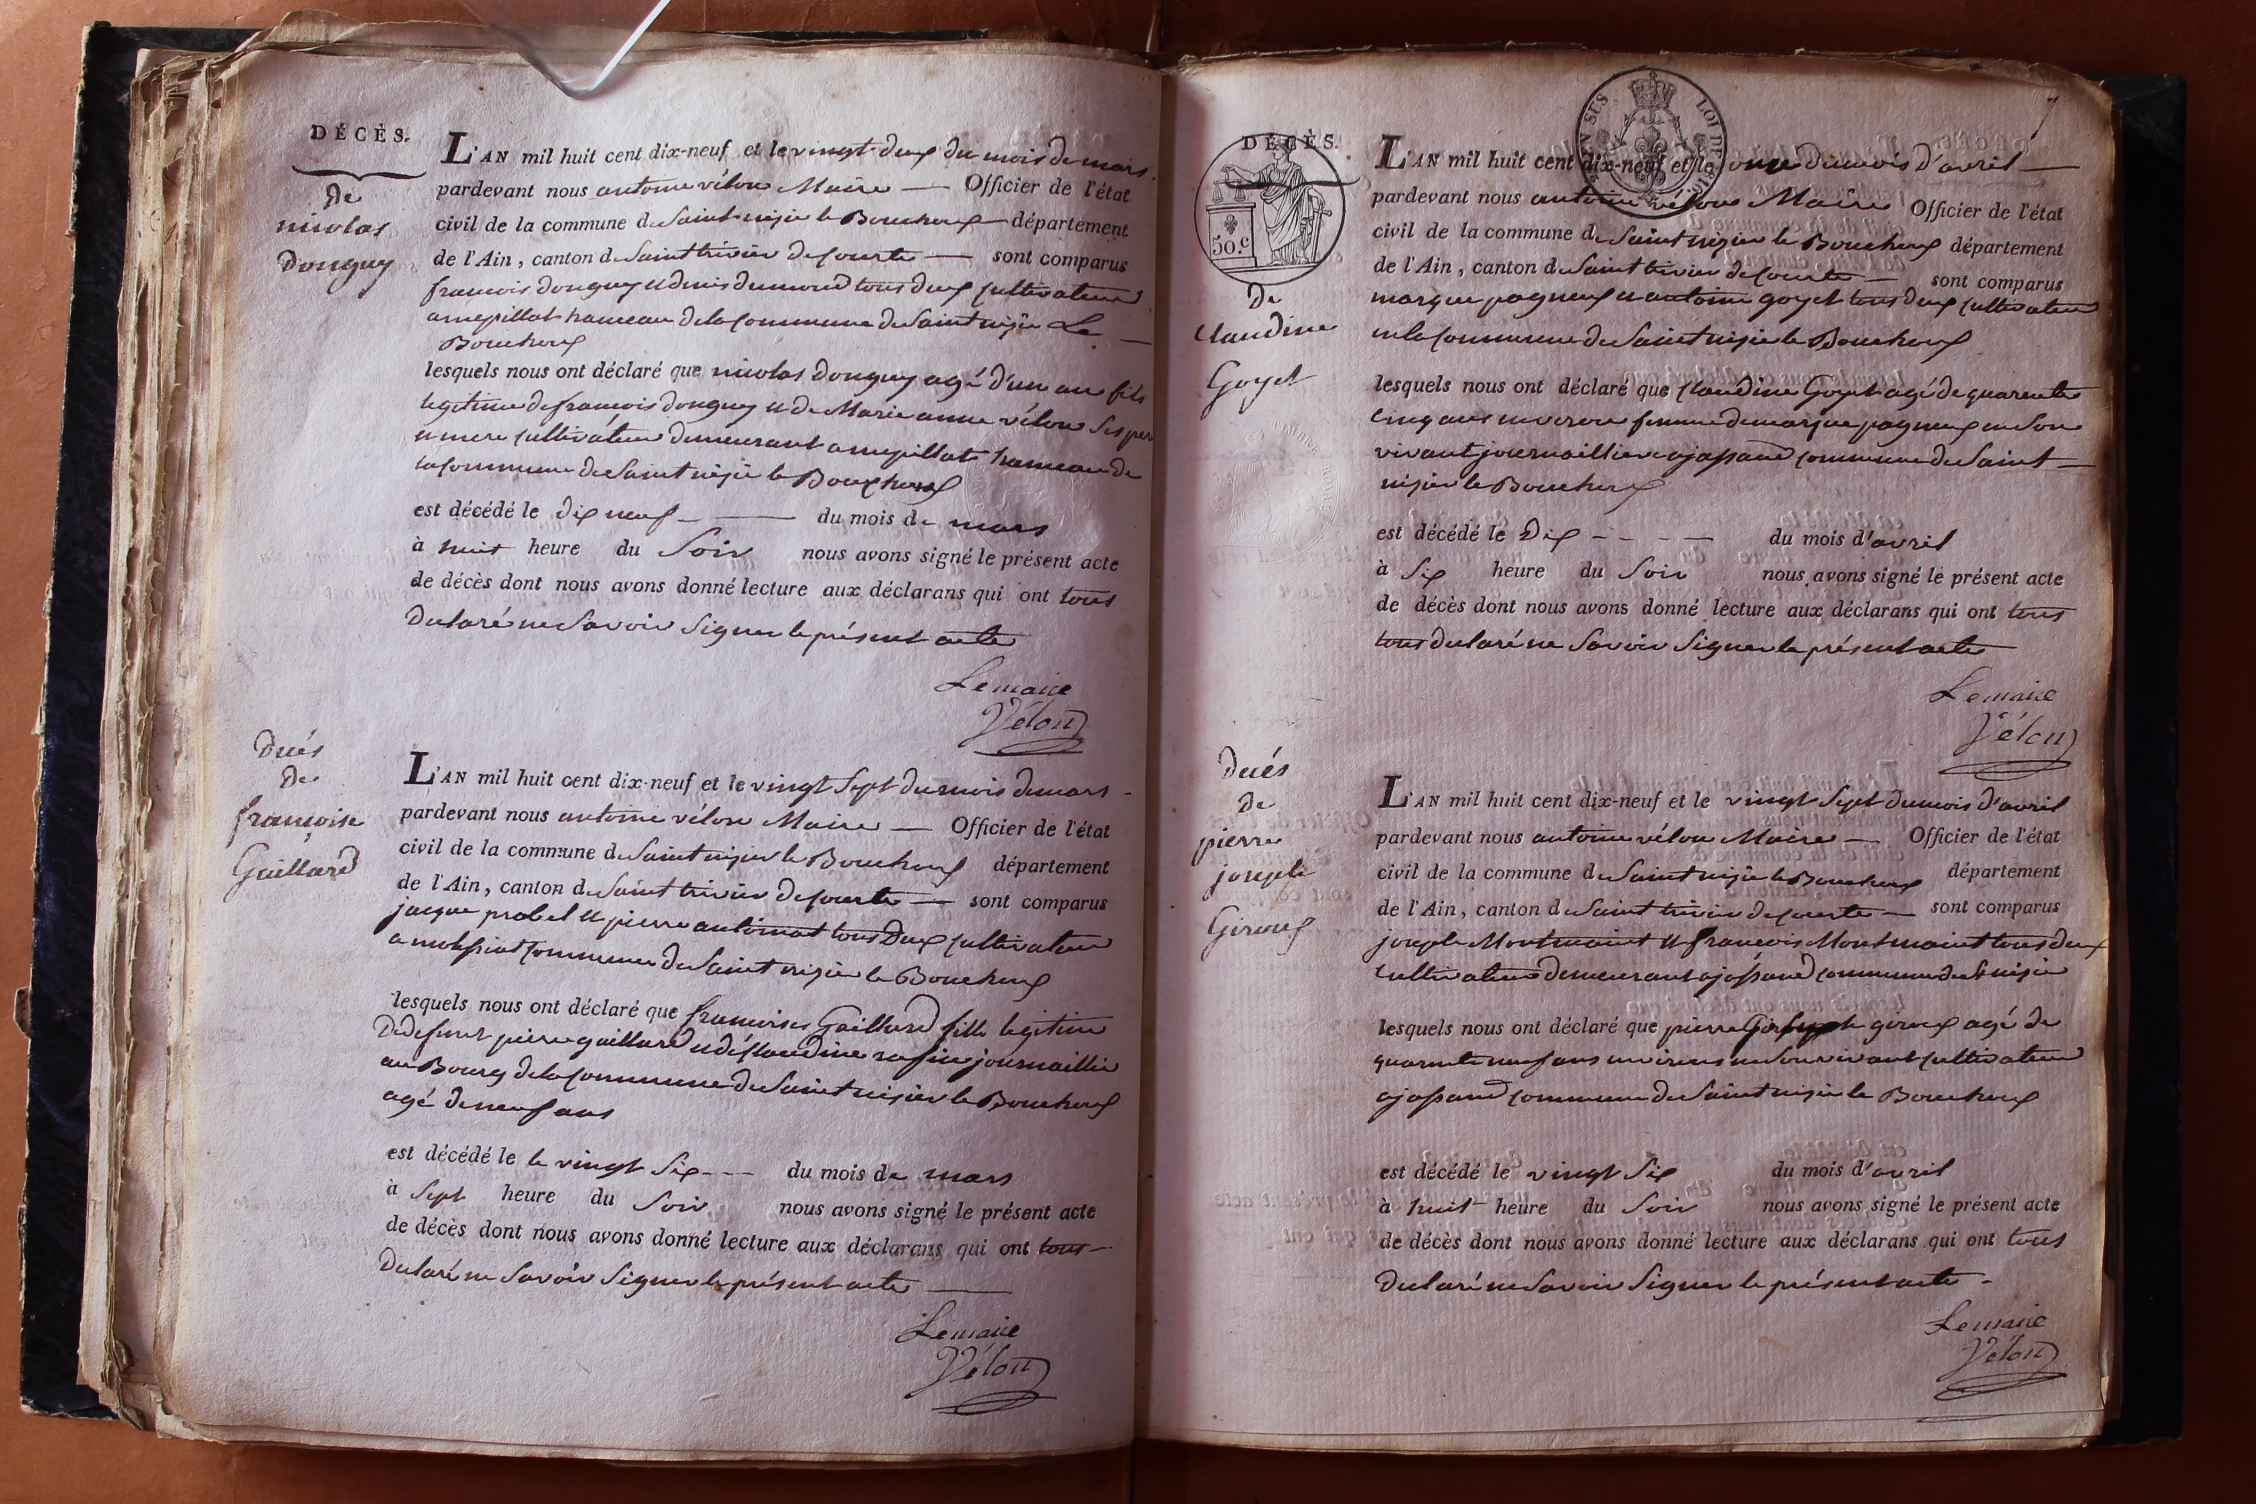 DÉCÈS.
De
nicolas
Donguy
L'AN mil huit cent dix-neuf et le vingt deux du mois de mars
pardevant nous antoine vélon Maire — Officier de l'état
civil de la commune de Saint nizier le Bouchoux département
de l'Ain, canton de Saint trivier de courte — sont comparus
francois donguy et denis dumond tous deux cultivateur
a mepillat hameau de la commune de Saint nizier Le
Bouchoux
lesquels nous ont déclaré que nicolas donguy agé d'un an fils
legitime de francois donguy et de Marie anne vélon Ses per
et mere cultivateur demeurant a mepillat hameau de
la commune de Saint nizier le Bouchoux
est décédé le dix neuf — du mois de mars
à huit heure du Soir nous avons signé le présent acte
de décès dont nous avons donné lecture aux déclarans qui ont tous
Declaré ne Savoir Signer le présent acte
Lemaire
Vélon
Decés
De
francoise
Gaillard
L'AN mil huit cent dix-neuf et le vingt Sept du mois de mars
pardevant nous antoine vélon Maire — Officier de l'état
civil de la commune de Saint nizier le Bouchoux département
de l'Ain, canton de Saint trivier de courte — sont comparus
jacque probel et pierre antoinat tous Deux cultivateur
a molissiat commune de Saint nizier le Bouchoux
lesquels nous ont déclaré que francoise Gaillard fille legitime
De defunt pierre gaillard et de claudine journaillier
au Bourg de la commune de Saint nizier le Bouchoux
agé de neuf ans
est décédé le le vingt Six - - - du mois de mars
à Sept heure du Soir nous avons signé le présent acte
de décès dont nous avons donné lecture aux déclarans qui ont tous
Declaré ne Savoir Signer le présent acte
Lemaire
Vélon
7
DÉCÈS.
50.c
LOI DE 1816
De
Claudine
Goyet
L'AN mil huit cent dix-neuf et le onze du mois d'avril
pardevant nous antoine vélon Maire Officier de l'état
civil de la commune de Saint nizier le Bouchoux département
de l'Ain, canton de Saint trivier de courte — sont comparus
marque pagneux et antoine goyet tous deux cultivateur
en la commune de Saint nizier le Bouchoux
lesquels nous ont déclaré que Claudine Goyet agé de quarente
cinq ans environ femme de marque pagneux en Son
vivant journaillier a jassand commune de Saint
nizier le Bouchoux
est décédé le Dix - - - du mois d'avril
à Six heure du Soir nous avons signé le présent acte
de décès dont nous avons donné lecture aux déclarans qui ont tous
tous declaré ne Savoir Signer le présent acte
Lemaire
Vélon
Decés
De
pierre
joseph
Giroux
L'AN mil huit cent dix-neuf et le vingt Sept du mois d'avril
pardevant nous antoine vélon Maire — Officier de l'état
civil de la commune de Saint nizier le Bouchoux département
de l'Ain, canton de Saint trivier de courte — sont comparus
joseph Montmaint et francois Montmaint tous deux
cultivateur demeurant a jassand commune de St nizier
lesquels nous ont déclaré que pierre joseph giroux agé de
quarente neuf ans environs en Son vivant cultivateur
a jassand commune de Saint nizier le Bouchoux
est décédé le vingt Six du mois d'avril
à huit heure du Soir nous avons signé le présent acte
de décès dont nous avons donné lecture aux déclarans qui ont tous
Declaré ne Savoir Signer le présent acte.
Lemaire
Vélon